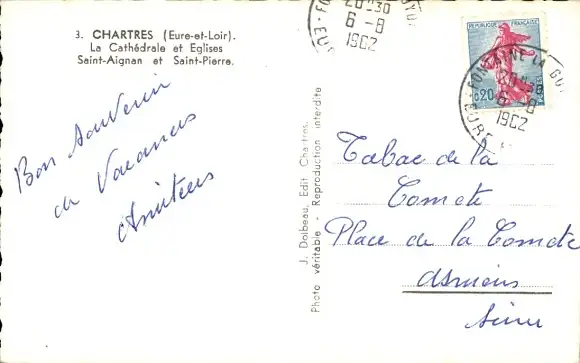 3. CHARTRES (Eure-et-Loir).
La Cathédrale et Eglises
Saint-Aignan et Saint-Pierre.
Bon Souvenir
de Vacances
Amitiés
J. Dolbeau, Edit Chartres.
Photo véritable - Reproduction interdite
20H30
6-8
1962
REPUBLIQUE FRANÇAISE
0,20
POSTES
FONTAINE LA GUY
6-8
1962
EURE
Tabac de la
Comete
Place de la Comete
Asnieres
Seine